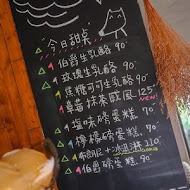 今日甜点
伯爵生乳酪 90
玫瑰生乳酪 90
焦糖可可生乳酪 90
草莓抹茶戚風 125
NEW!
鹽味磅蛋糕 90
檸檬磅蛋糕 90
布朗尼+冰淇淋 110
伯爵磅蛋糕 90